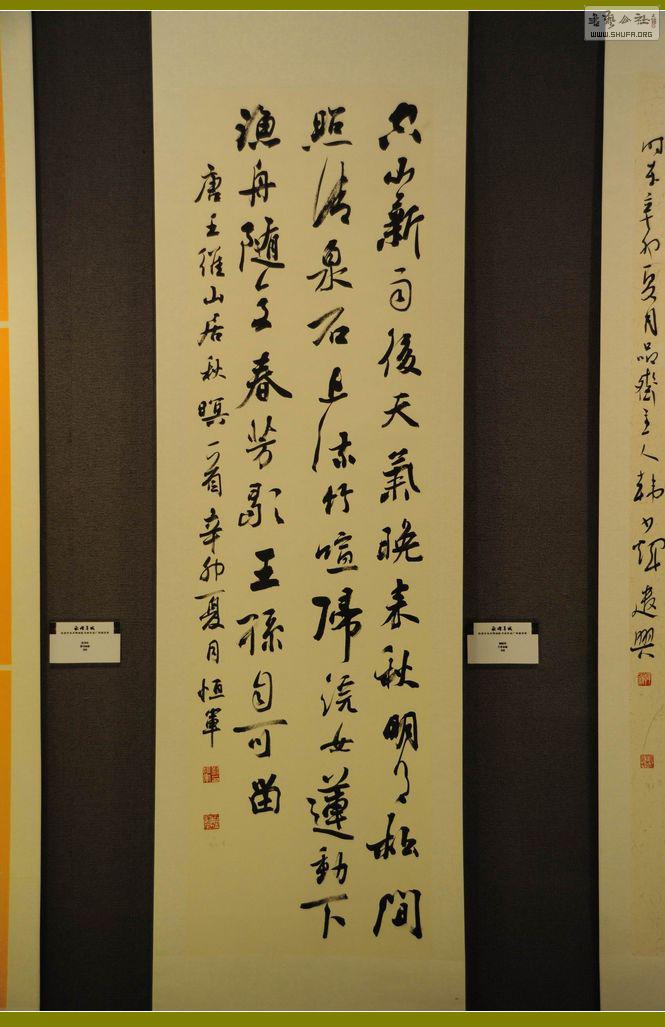 書藝公社
WWW.SHUFA.ORG
时在辛卯夏月品齋主人韩少輝遣興
空山新雨後天氣晚来秋明月松間
照清泉石上流竹喧歸浣女蓮動下
漁舟随意春芳歇王孫自可留
唐王維山居秋暝一首辛卯夏月恒軍